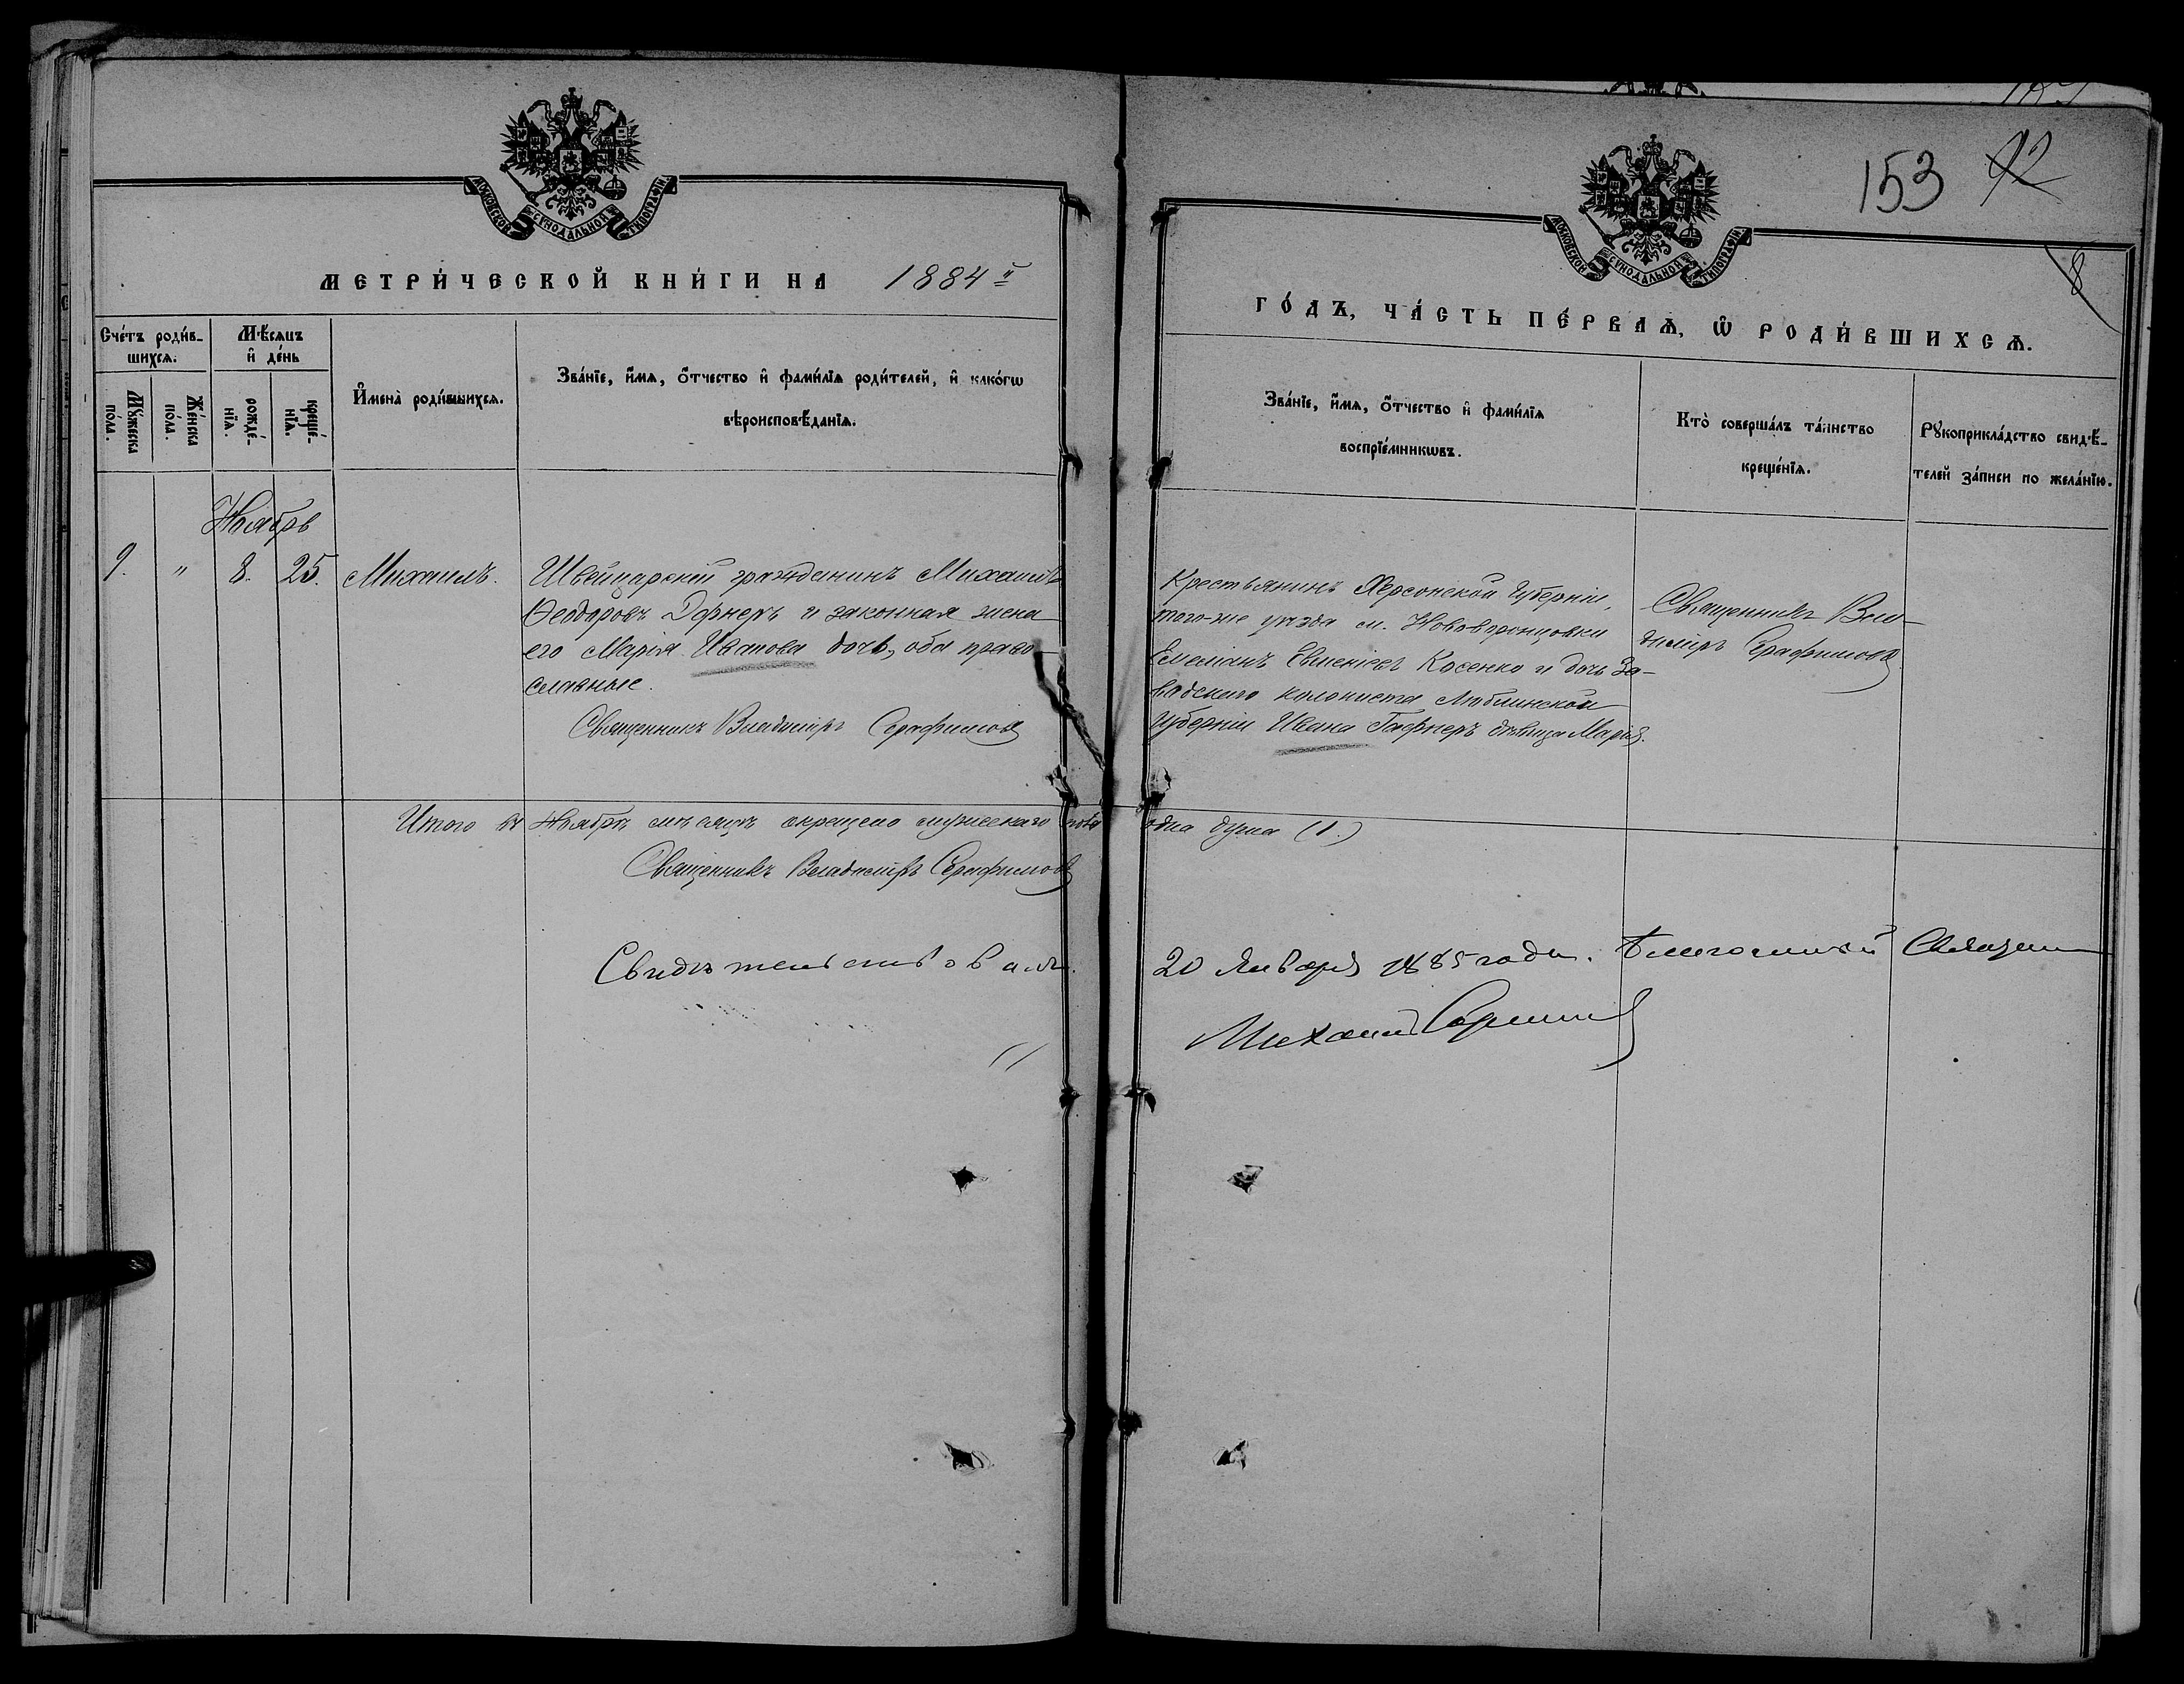 153 92
8
МОСКОВСКОЙ СѴНОДАЛЬНОЙ ТИПОГРАФІИ
МОСКОВСКОЙ СѴНОДАЛЬНОЙ ТИПОГРАФІИ
МЕТРИ́ЧЕСКОЙ КНИ́ГИ НА 1884й
ГО́ДЪ, ЧА́СТЬ ПЕ́РВАѦ, Ѡ҆ РОДИ́ВШИХСѦ.
Сче́тъ роди́в-
шихсѧ.
Мѣ́сѧцъ
и҆ де́нь
Мꙋ́жеска
по́ла.
Же́нска
по́ла.
рожде́-
нїѧ.
креще́-
нїѧ.
И҆мена̀ роди́вшихсѧ.
Зва́нїе, и҆́мѧ, ѻ҆́тчество и҆ фами́лїѧ роди́телей, и҆ како́гѡ
вѣроисповѣ́данїѧ.
Зва́нїе, и҆́мѧ, ѻ҆́тчество и҆ фами́лїѧ
воспрїе́мникѡвъ.
Кто̀ соверша́лъ та́инство
креще́нїѧ.
Рꙋкоприкла́дство свидѣ́-
телей за́писи по жела́нїю.
Ноябрь
9. " 8. 25. Михаилъ.
Швейцарскій гражданинъ Михаилъ
Ѳеодоровъ Дафнеръ и законная жена
его Марія Иванова дочь, оба право-
славные.
Священникъ Владиміръ Серафимовъ
Крестьянинъ Херсонской Губерніи,
того-же уѣзда м. Нововоронцовки
Емеліанъ Евменіевъ Косенко и дочь За-
вадскаго колониста Люблинской
Губерніи Ивана Гафнеръ дѣвица Марія.
Священникъ Вла-
диміръ Серафимовъ
Итого въ Ноябрѣ мѣсяцѣ окрещено мужескаго пола одна душа (1.)
Священникъ Владиміръ Серафимовъ
Свидѣтельствовалъ. 20 Января 1885 года. Благочинный Священ
Михаилъ